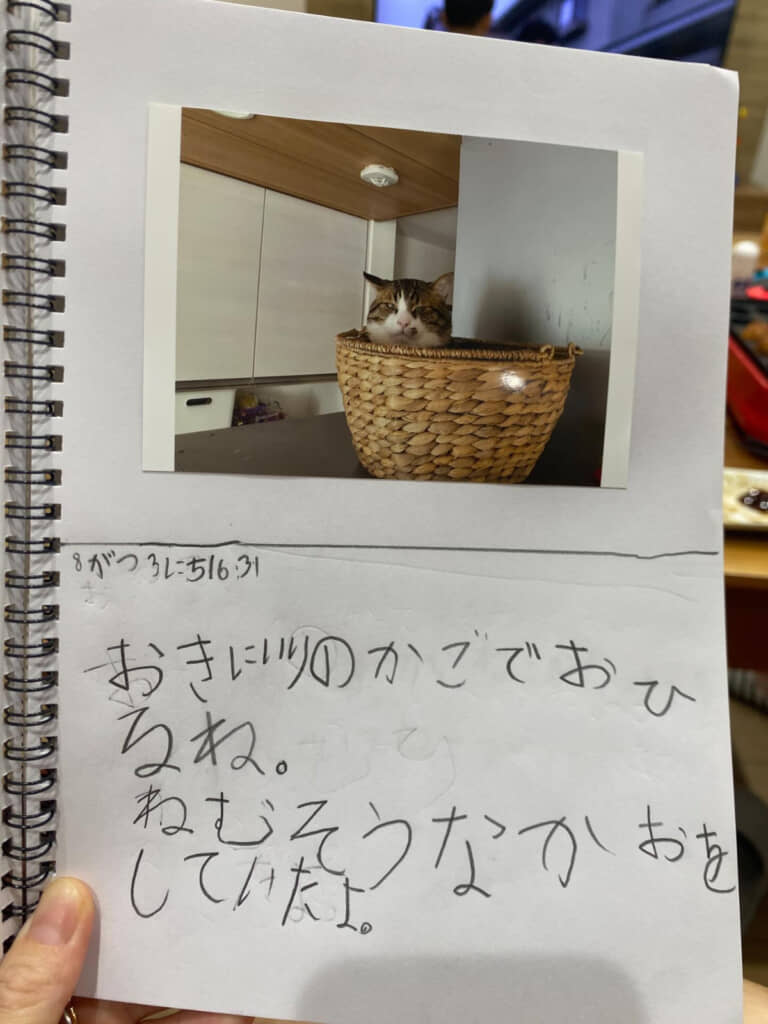 8がつ3にち16:31
おきにいりのかごでおひ
るね。
ねむそうなかおを
していたよ。